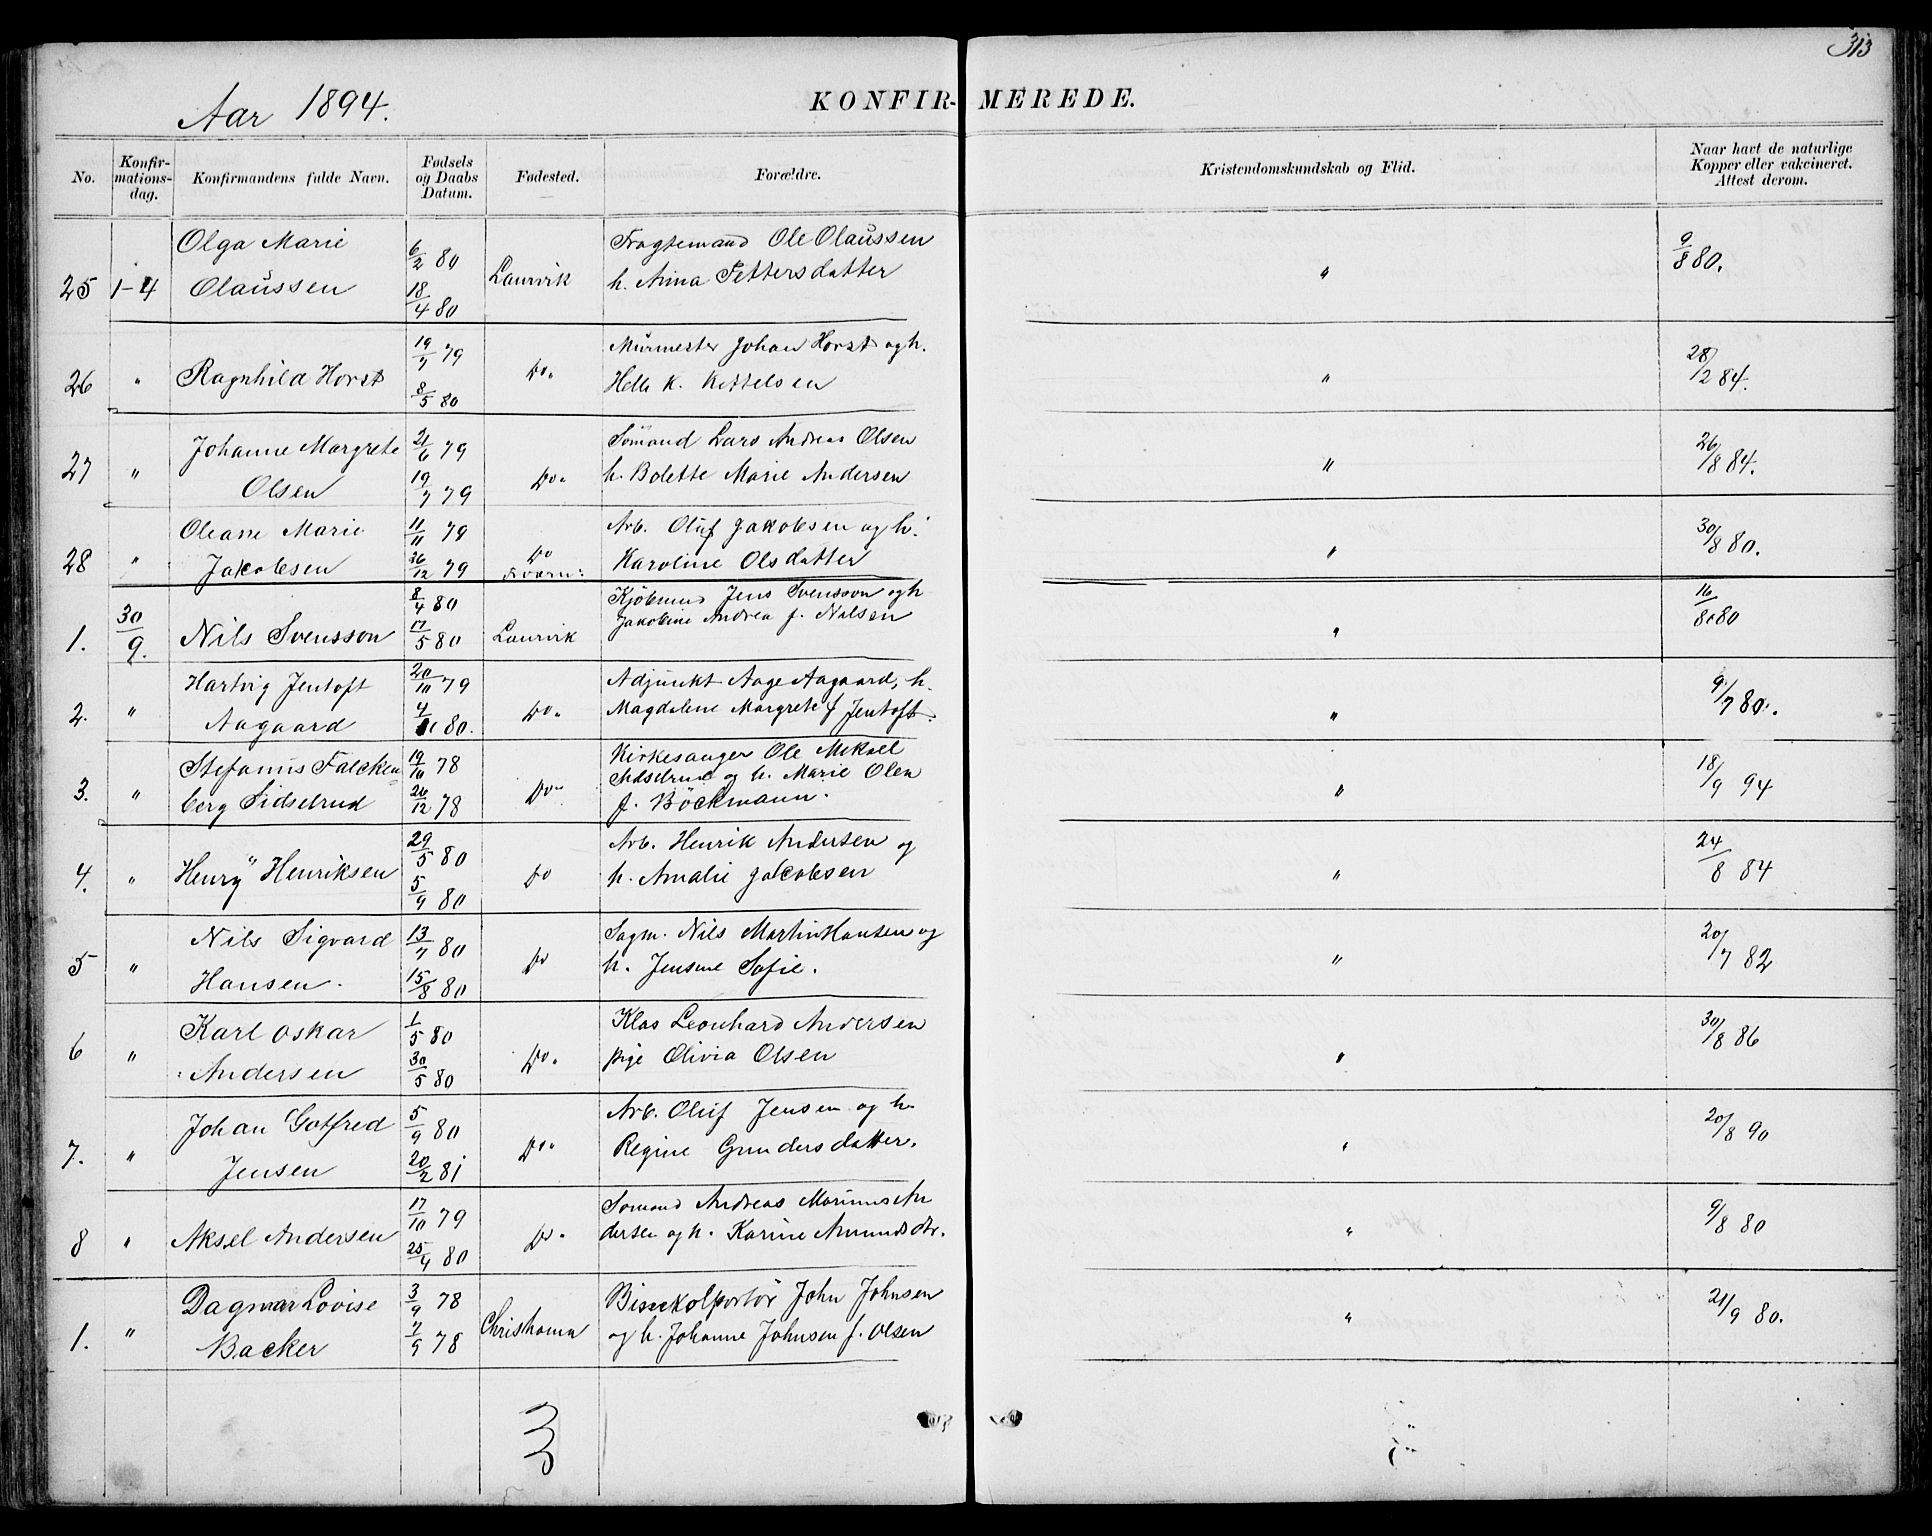 313
Aar 1894.
KONFIR- MEREDE.
No.
Konfir-
mations-
dag.
Konfirmandens fulde Navn.
Fødsels
og Daabs
Datum.
Fødested.
Forældre.
Kristendomskundskab og Flid.
Naar havt de naturlige
Kopper eller vakcineret.
Attest derom.
Olga Marie 6/2 80 Fragtemand Ole Olaussen 9/8 80.
25 1-4 Olaussen 18/4 80 Laurvik h. Anna Pettersdatter "
19/7 79 Murmester Johan Horst og h. 28/2 84.
26 " Ragnhild Horst 8/5 80 Do. Helle K. Kittelsen "
Johanne Margrete 21/6 79 Sømand Lars Andreas Olsen 26/8 84.
27 " Olsen 19/7 79 Do. h. Bolette Marie Andersen "
Oleane Marie 11/11 79 Arb. Oluf Jakobsen og h. 30/8 80.
28 " Jakobsen 26/12 79 Do Karoline Olsdatter "
30/9. 8/4 80 Jens Svensson og h 16/8 80
1. Nils Svensson 17/5 80 Laurvik Jakobine Andrea f. Nilsen "
Hartvig Jentoft 20/10 79 Adjunkt Aage Aagaard, h. 9/7 80.
2. " Aagaard 4/ 80. Do. Magdalene Margrete f Jentoft. "
Stefanus Falcken 19/10 78 Kirkesanger Ole Mikael 18/9 94
3. " berg Sidselrud 26/12 78 Do. Sidselrud og h. Marie Olea "
f. Böckmann.
29/5 80 Arb. Henrik Andersen og 24/8 84
4. " Henry Henriksen 5/9 80 Do h. Amalie Jakobsen "
Nils Sigvard 13/7 80 Sagm. Nils Martin Hansen og 20/7 82
5 " Hansen. 15/8 80 Do h. Jensine Sofie. "
Karl Oskar 1/5 80 Klas Leonhard Andersen 30/8 86
6 " Andersen 30/5 80 Do. pige Olivia Olsen "
Johan Gotfred 5/9 80 Arb. Oluf Jensen og h. 20/8 90
7. " Jensen 20/2 81 Do. Regine Gundersdatter. "
17/10 79 Sømand Andreas Marinus An 9/8 80
8 " Aksel Andersen 25/4 80 Do. dersen og h. Karine Amundsdtr. "
Dagmar Lovise 3/9 78 John Johnsen 21/9 80.
1. " Backer 7/9 78 Christiania og h. Johanne Johnsen f. Olsen "